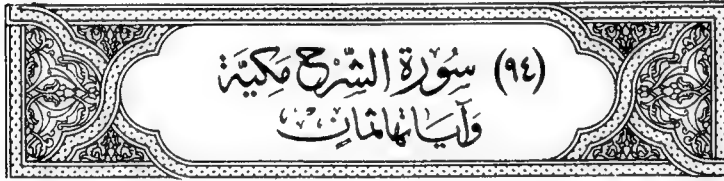 (٩٤) سُورَة الشَّرْح مَكِيَّة
وَآيَاتُهَا ثَمَانٍ